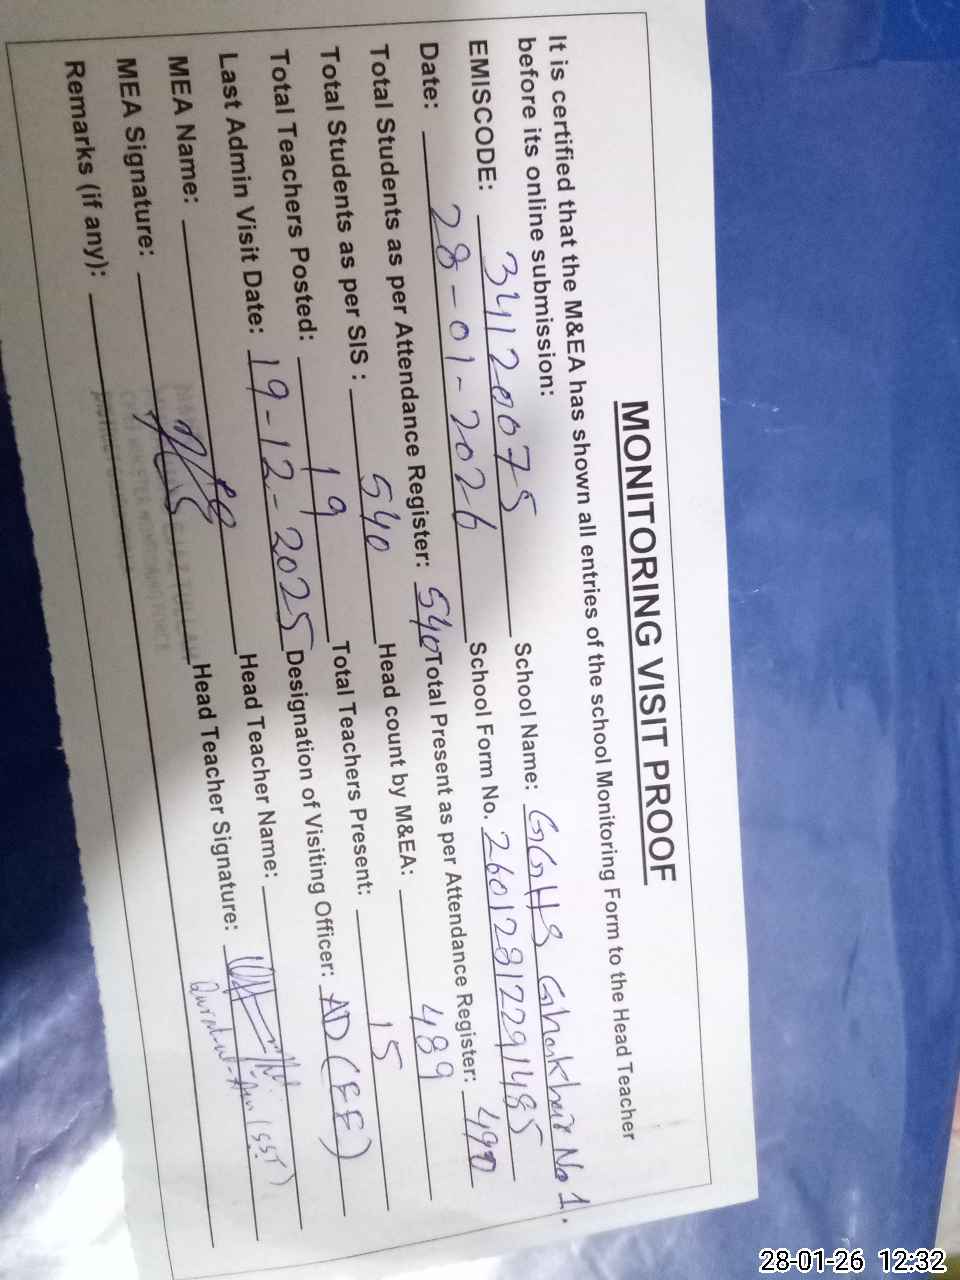 MONITORING VISIT PROOF
It is certified that the M&EA has shown all entries of the school Monitoring Form to the Head Teacher
before its online submission:
EMISCODE: 34120075 School Name: GGHS Gharkhair No 1.
Date: 28-01-2026 School Form No. 26012812291485
Total Students as per Attendance Register: 540 Total Present as per Attendance Register: 490
Total Students as per SIS : 540 Head count by M&EA: 489
Total Teachers Posted: 19 Total Teachers Present: 15
Last Admin Visit Date: 19-12-2025 Designation of Visiting Officer: AD (EE)
MEA Name: Head Teacher Name:
MEA Signature: Head Teacher Signature:
Remarks (if any): (SST)
28-01-26 12:32